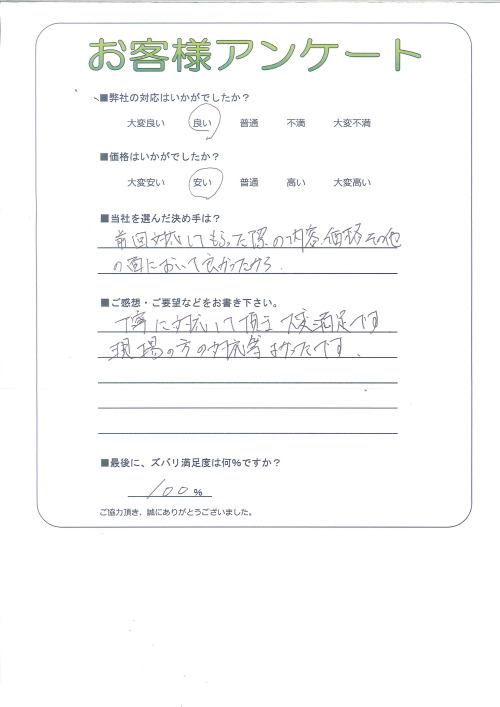 お客様アンケート
■弊社の対応はいかがでしたか？
大変良い 良い 普通 不満 大変不満
■価格はいかがでしたか？
大変安い 安い 普通 高い 大変高い
■当社を選んだ決め手は？
前回対応してもらった際の内容、価格その他
の面において良かったから。
■ご感想・ご要望などをお書き下さい。
丁寧に対応して頂き大変満足です
現場の方の対応等よかったです。
■最後に、ズバリ満足度は何％ですか？
100％
ご協力頂き、誠にありがとうございました。